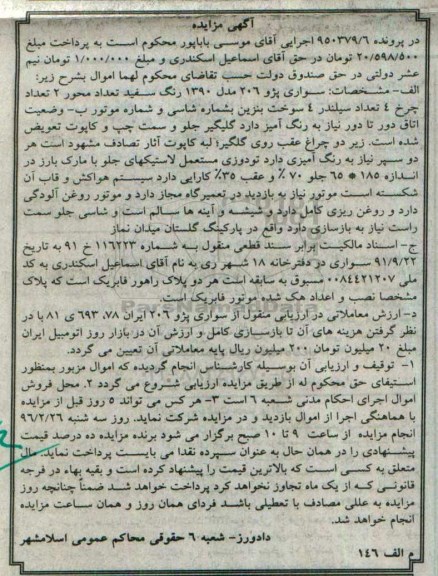 آگهی مزایده
در پرونده ۹۵۰۳۷۹/۶ اجرایی آقای موسی باباپور محکوم است به پرداخت مبلغ
۲۰/۵۹۸/۵۰۰ تومان در حق آقای اسماعیل اسکندری و مبلغ ۱/۰۰۰/۰۰۰ تومان نیم
عشر دولتی در حق صندوق دولت حسب تقاضای محکوم لهما اموال بشرح زیر:
الف- مشخصات: سواری پژو ۲۰۶ مدل ۱۳۹۰ رنگ سفید تعداد محور ۲ تعداد
چرخ ۴ تعداد سیلندر ۴ سوخت بنزین بشماره شاسی و شماره موتور ب- وضعیت
اتاق دور تا دور نیاز به رنگ آمیز دارد گلیگیر جلو و سمت چپ و کاپوت تعویض
شده است. زیر دو چراغ عقب روی گلگیر؛ لبه کاپوت آثار تصادف مشهود است هر
دو سپر نیاز به رنگ آمیزی دارد تودوزی مستعمل لاستیکهای جلو با مارک بارز در
اندازه ۱۸۵ * ۶۵ جلو ۷۰ ٪ و عقب ۳۵٪ کارایی دارد سیستم هواکش و قاب آن
شکسته است موتور نیاز به بازدید در تعمیرگاه مجاز دارد و موتور روغن آلودگی
دارد و روغن ریزی کامل دارد و شیشه و آینه ها سالم است و شاسی جلو سمت
راست نیاز به بازسازی دارد واقع در پارکینگ گلستان میدان نماز
ج- اسناد مالکیت برابر سند قطعی منقول به شماره ۱۱۶۲۲۳ خ ۹۱ به تاریخ
۹۱/۹/۲۲ سواری در دفترخانه ۱۸ شهر ری به نام آقای اسماعیل اسکندری به کد
ملی ۰۰۸۴۴۲۱۲۰۷ مسبوق به سابقه است هر دو پلاک راهور فابریک است که پلاک
مشخصا نصب و اعداد هک شده موتور فابریک است.
د- ارزش معاملاتی در ارزیابی منقول از سواری پژو ۲۰۶ ایران ۷۸، ۶۹۳ ی ۸۱ با در
نظر گرفتن هزینه های آن تا بازسازی کامل و ارزش آن در بازار روز اتومبیل ایران
مبلغ ۲۰ میلیون تومان ۲۰۰ میلیون ریال پایه معاملاتی آن تعیین می گردد.
۱- توقیف و ارزیابی آن بوسیله کارشناس انجام گردیده که اموال مزبور بمنظور
استیفای حق محکوم له از طریق مزایده ارزیابی شروع می گردد ۲. محل فروش
اموال اجرای احکام مدنی شعبه ۶ است ۳- هر کس می تواند ۵ روز قبل از مزایده
با هماهنگی اجرا از اموال بازدید و در مزایده شرکت نماید. روز سه شنبه ۹۶/۲/۲۶
انجام مزایده از ساعت ۹ تا ۱۰ صبح برگزار می شود برنده مزایده ده درصد قیمت
پیشنهادی را در همان حال به عنوان سپرده نقدا می بایست پرداخت نماید. مال
متعلق به کسی است که بالاترین قیمت را پیشنهاد کرده است و بقیه بهاء در فرجه
قانونی که از یک ماه تجاوز نخواهد کرد پرداخت خواهد شد ضمناً چنانچه روز
مزایده به عللی مصادف با تعطیلی باشد فردای همان روز و همان ساعت مزایده
انجام خواهد شد.
دادورز- شعبه ۶ حقوقی محاکم عمومی اسلامشهر
م الف ۱۴۶